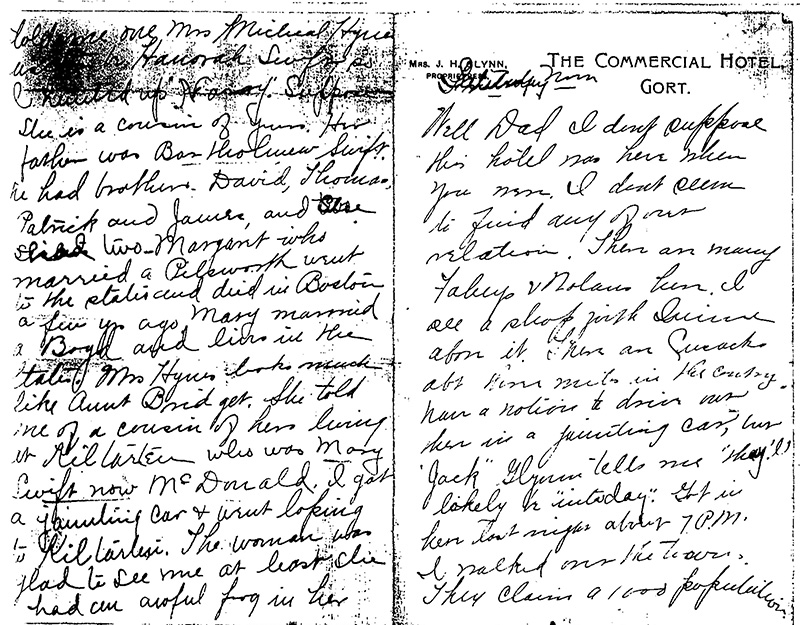 told me one Mrs Micheal Hynes
Hanorah Swift so
I hunted up "Hanay". Suppose
She is a cousin of yours. Her
father was Bartholmew Swift.
he had brothers David, Thomas,
Patrick and James, and
two – Margaret who
married a Pilsworth went
to the states and died in Boston
a few yrs ago, Mary married
a Boyd and lives in the
states. Mrs Hynes looks much
like Aunt Bridget. She told
me of a cousin of hers living
at Kiltarten who was Mary
Swift now McDonald. I got
a jaunting car & went loping
to Kiltarten. The woman was
glad to see me at least she
had an awful frog in her
MRS. J. H. GLYNN,
PROPRIETRESS.
THE COMMERCIAL HOTEL,
GORT.
Well Dad I dont suppose
this hotel was here when
you were. I dont seem
to find any of our
relation. There are many
Faheys & Nolans here. I
see a shop with Quinn
above it. There are Cusacks
abt nine miles in the country.
have a notion to drive out
there in a jaunting car, but
"Jack" Glynn tells me "they'll
likely be "intoday". Got in
here last night about 7 P.M.
I walked over the town.
They claim a 1000 population.